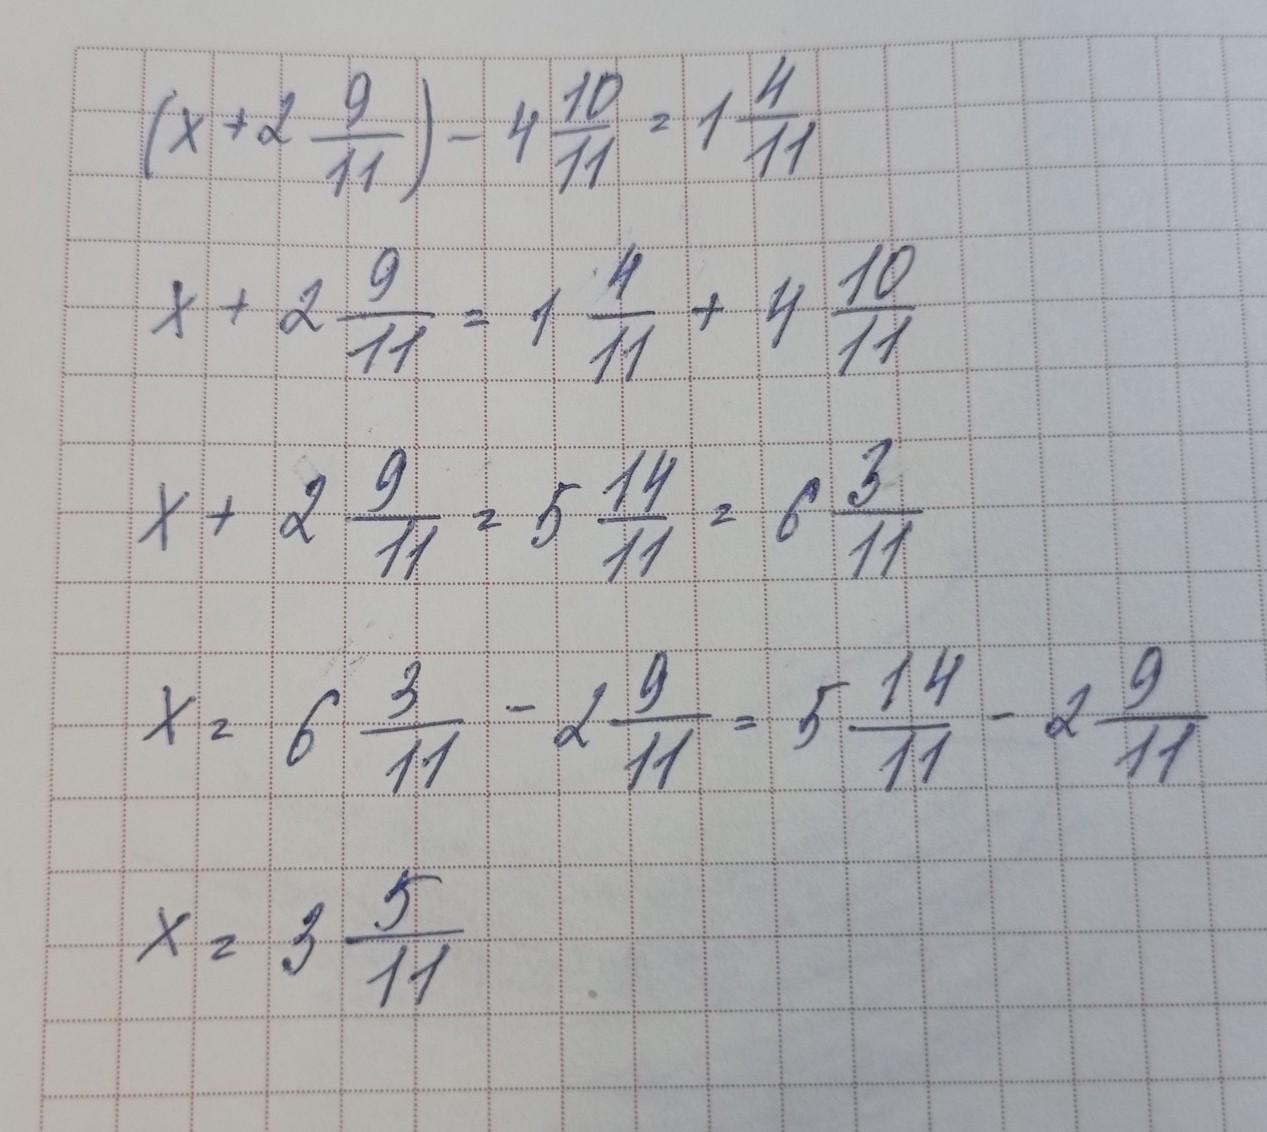 (x + 2 9/11) - 4 10/11 = 1 4/11
x + 2 9/11 = 1 4/11 + 4 10/11
x + 2 9/11 = 5 14/11 = 6 3/11
x = 6 3/11 - 2 9/11 = 5 14/11 - 2 9/11
x = 3 5/11